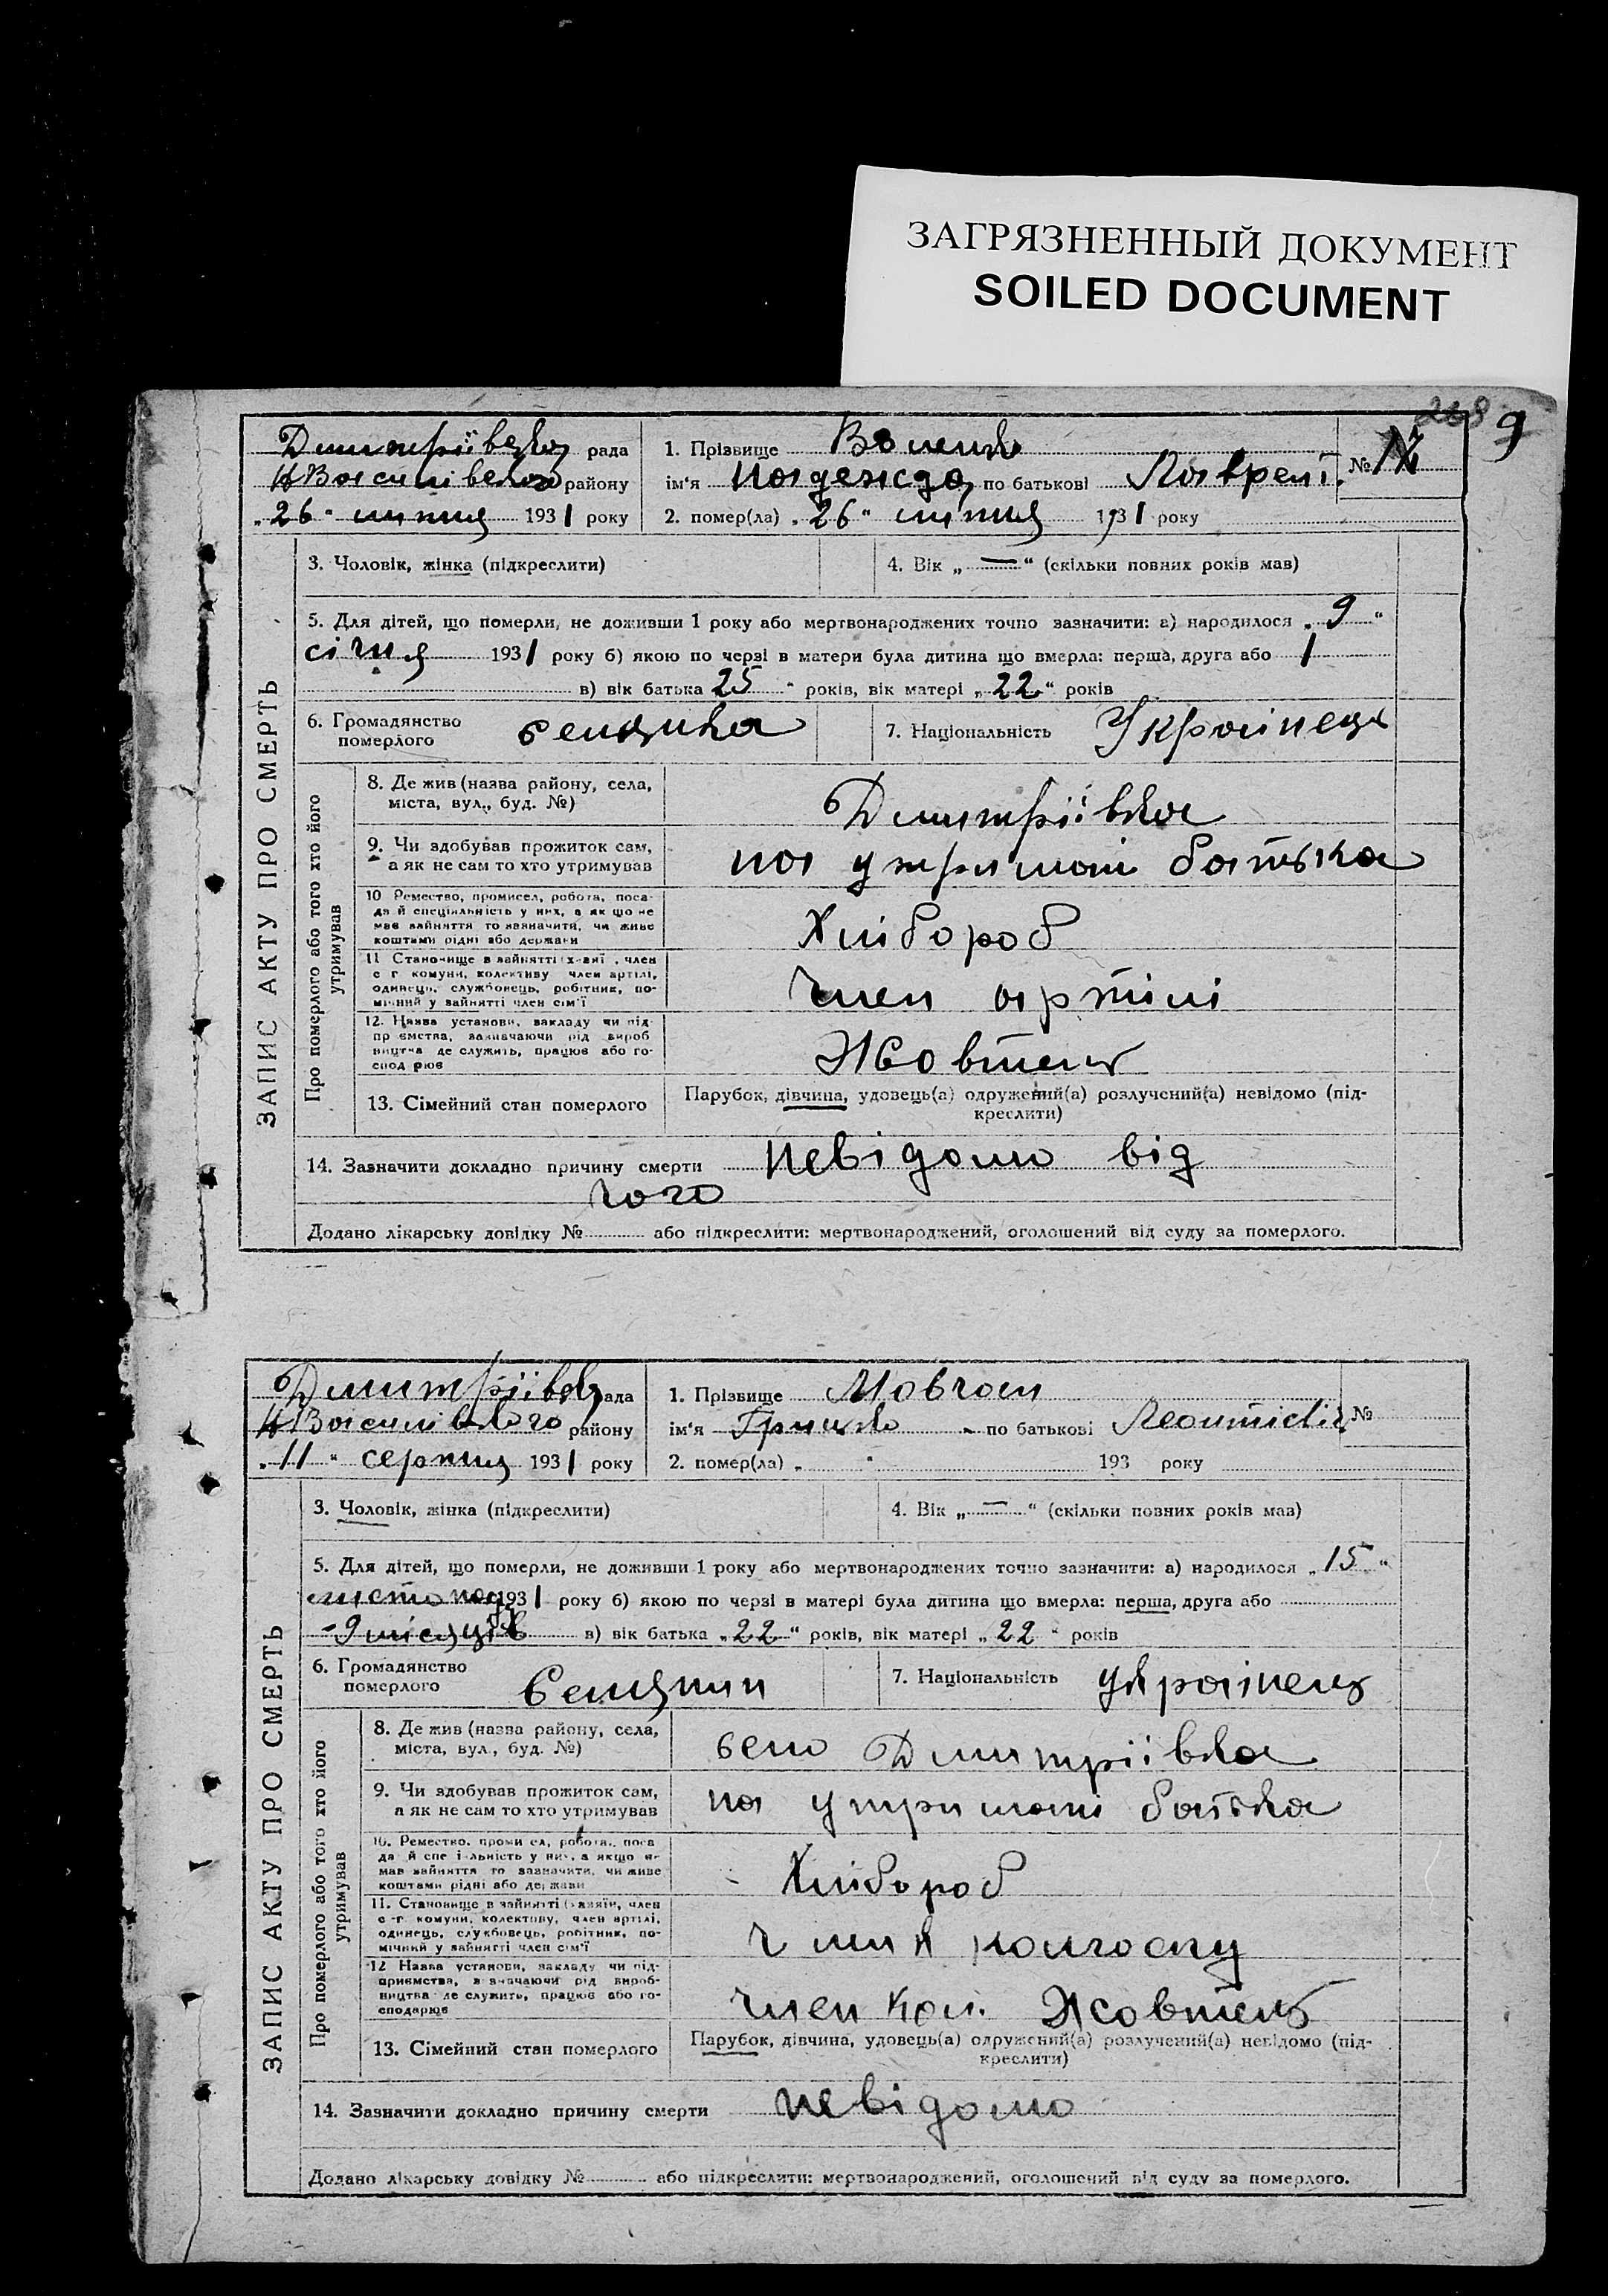 ЗАГРЯЗНЕННЫЙ ДОКУМЕНТ
SOILED DOCUMENT
9
ЗАПИС АКТУ ПРО СМЕРТЬ
рада
району
"26" липня 1931 року
1. Прізвище
№
ім'я Надежда по батькові
2. помер(ла) "26" липня 1931 року
3. Чоловік, жінка (підкреслити)
4. Вік „—“ (скільки повних років мав)
5. Для дітей, що померли, не доживши 1 року або мертвонароджених точно зазначити: а) народилося „9“
січня 1931 року б) якою по черзі в матери була дитина що вмерла: перша, друга або 1
в) вік батька 25 " років, вік матері „22“ років
6. Громадянство померлого селянка
7. Національність Українець
Про померлого або того хто його утримував
8. Де жив (назва району, села, міста, вул., буд. №) Дмитріївка
9. Чи здобував прожиток сам, а як не сам то хто утримував на утримані батька
10 Ремество, промисел, робота, посада й спеціяльність у них, а як що не має зайняття то зазначити, чи живе коштами рідні або держави Хлібороб
11 Становище в зайнятті: хазяї, член с г комуни, колективу член артілі, одинець, службовець, робітник, помічний у зайнятті член сім'ї член артілі
12. Назва установи, закладу чи підприємства, зазначаючи рід виробництва де служить, працює або господарює Жовтень
13. Сімейний стан померлого Парубок, дівчина, удовець(а) одружений(а) розлучений(а) невідомо (підкреслити)
14. Зазначити докладно причину смерти невідомо від
чого
Додано лікарську довідку № або підкреслити: мертвонароджений, оголошений від суду за померлого.
ЗАПИС АКТУ ПРО СМЕРТЬ
рада
району
"11" серпня 1931 року
1. Прізвище Мовчан
№
ім'я Грицько по батькові
2. помер(ла) " " 193 року
3. Чоловік, жінка (підкреслити)
4. Вік „—“ (скільки повних років мав)
5. Для дітей, що померли, не доживши 1 року або мертвонароджених точно зазначити: а) народилося „15“
листопад 1931 року б) якою по черзі в матері була дитина що вмерла: перша, друга або
-9 місяців в) вік батька „22“ років, вік матері „22“ років
6. Громадянство померлого Селянин
7. Національність українець
Про померлого або того хто його утримував
8. Де жив (назва району, села, міста, вул., буд. №) село Дмитріївка
9. Чи здобував прожиток сам, а як не сам то хто утримував на утримані батька
10. Ремество, промисел, робота, посада й спеціяльність у них, а якщо не має зайняття то зазначити, чи живе коштами рідні або держави Хлібороб
11. Становище в зайнятті: хазяїн, член с-г комуни, колективу, член артілі, одинець, службовець, робітник, помічний у зайнятті член сім'ї член колгоспу
12 Назва установи, закладу чи підприємства, зазначаючи рід виробництва де служить, працює або господарює член кол. Жовтень
13. Сімейний стан померлого Парубок, дівчина, удовець(а) одружений(а) розлучений(а) невідомо (підкреслити)
14. Зазначити докладно причину смерти невідомо
Додано лікарську довідку № або підкреслити: мертвонароджений, оголошений від суду за померлого.